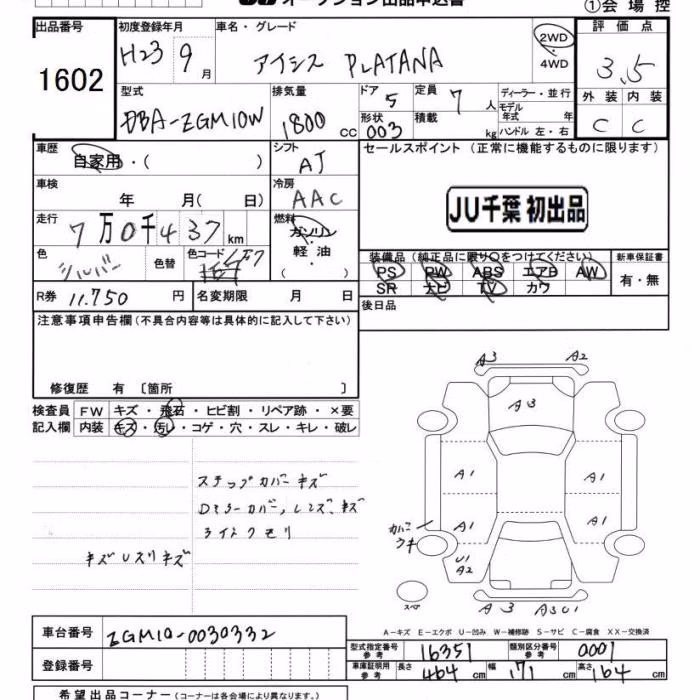 オークション出品申込書
①会場控
出品番号
1602
初度登録年月
H23 9月
車名・グレード
アイシス PLATANA
2WD
・
4WD
評価点
3.5
型式
DBA-ZGM10W
排気量
1800 cc
ドア 5
定員 7 人
形状 003
積載 kg
ディーラー・並行
モデル年式 年
ハンドル 左・右
外装 内装
C C
車歴
自家用・( )
シフト
AJ
セールスポイント (正常に機能するものに限ります)
車検
年 月( 日)
冷房
AAC
JU千葉 初出品
走行
7万0千437km
燃料
ガソリン
軽油
( )
色
シルバー
色替
色コード
装備品 (純正品に限り○をつけてください)
新車保証書
PS PW ABS エアB AW
SR ナビ TV カワ
有・無
R券 11.750 円
名変期限 月 日
後日品
注意事項申告欄(不具合内容等は具体的に記入して下さい)
修復歴 有 〔箇所 〕
検査員 FW キズ・飛石・ヒビ割・リペア跡・×要
記入欄 内装 キズ・汚レ・コゲ・穴・スレ・キレ・破レ
A3 A2
A3
A1 A1
A1 A1
カバー
ウキ
U1
A2
スペア
A3
ステップカバーキズ
Dミラーカバー,レンズ,キズ
ライトクモリ
キズUスリキズ
A-キズ E-エクボ U-凹み W-補修跡 S-サビ C-腐食 XX-交換済
車台番号 ZGM10-0030332
登録番号
型式指定番号 参考 16351
類別区分番号 参考 0001
車庫証明用 参考 長さ 464 cm 幅 171 cm 高さ 164 cm
希望出品コーナー(コーナーは各会場により異なります。)